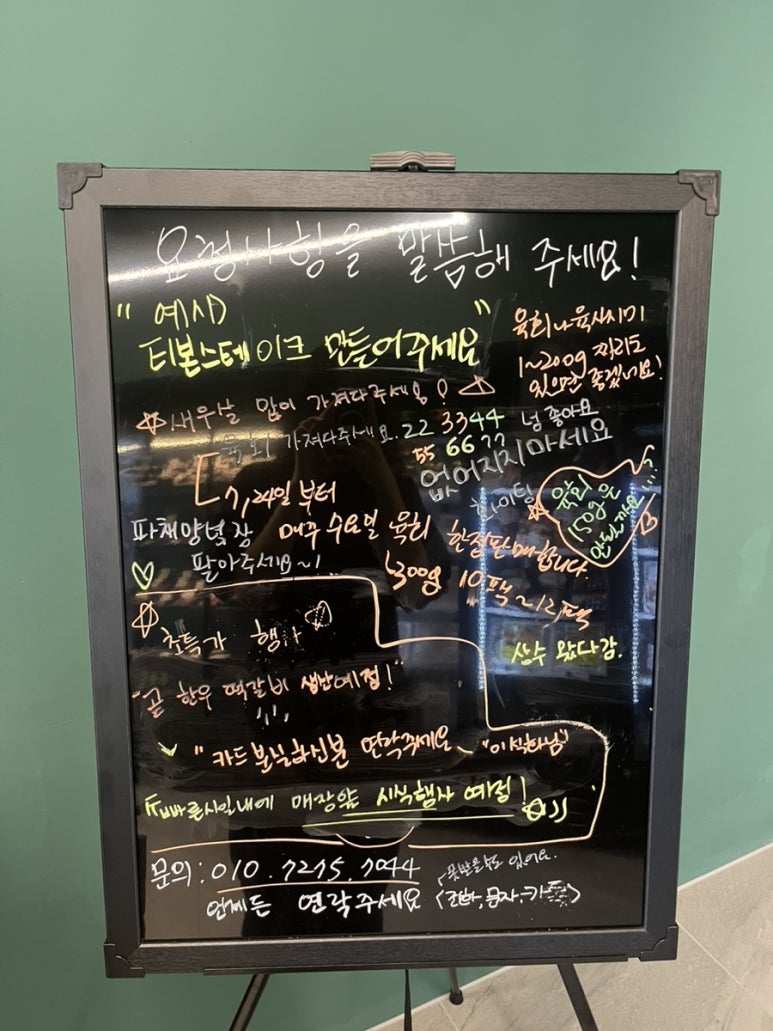 요청사항을 말씀해 주세요!
" 예시) "
티본스테이크 만들어주세요
육회나 육사시미
1~200g 짜리도
있으면 좋겠네요!
☆새우살 많이 가져다주세용!
육회 가져다주세요. 22 3344 넘 좋아요
55 66 77 없어지지마세요
7, 24일 부터
매주 수요일 육회 한접판매합니다.
300g 10팩~12팩
육회
150은
파채양념장
팔아주세요~!
상수 왔다감.
초특가 행사
"곧 한우 떡갈비 생산예정!"
"카드분실하신분 연락주세요~ "이식하님"
빠른시일내에 매장앞 시식행사 예정!
문의: 010.7275.7044
못받을수도 있어요.
언제든 연락주세요